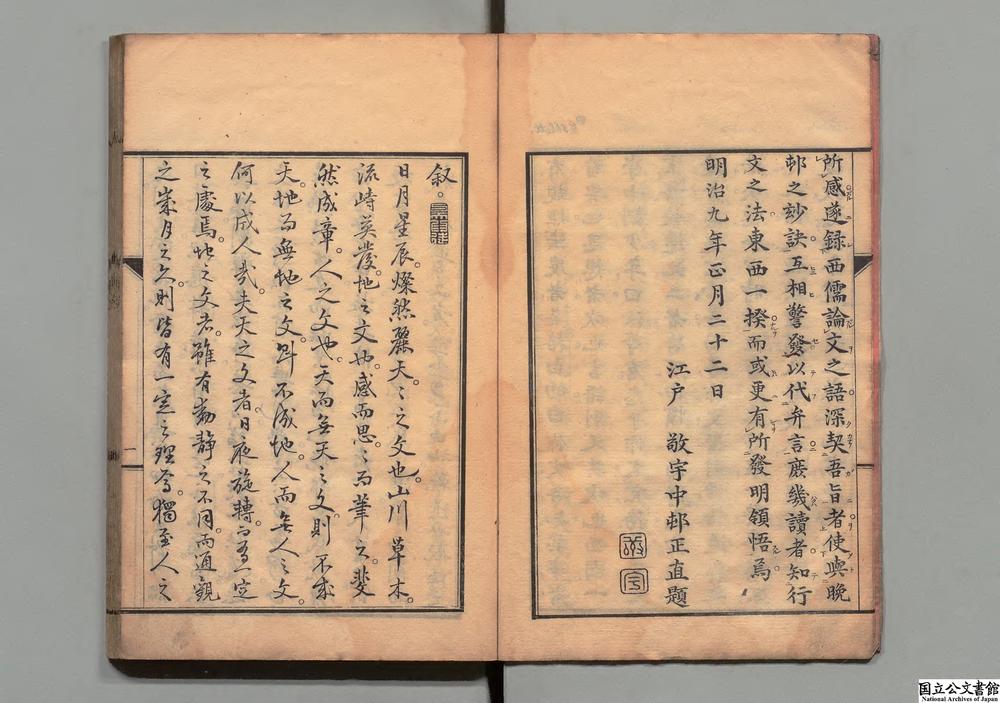 所感遂録西儒論文之語深契吾旨者使與晩
邨之妙訣互相警發以代弁言庶幾讀者知行
文之法東西一揆而或更有所發明領悟焉
明治九年正月二十二日
江戸 敬宇中邨正直題
敬宇
叙。
日月星辰。燦然麗天。天之文也。山川草木。
流峙英發。地之文也。感而思。思而筆之。斐
然成章。人之文也。天而無天之文。則不成
天。地而無地之文。則不成地。人而無人之文。
何以成人哉。夫天之文者。日夜旋轉。而有一定
之處焉。地之文者。雖有動靜之不同。而通觀
之歳月之久。則皆有一定之理焉。獨至人之
一
国立公文書館
National Archives of Japan